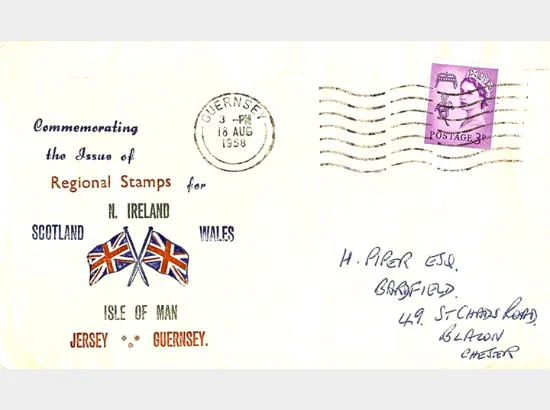 Commemorating
the Issue of
Regional Stamps for
N. IRELAND
SCOTLAND WALES
ISLE OF MAN
JERSEY GUERNSEY.
GUERNSEY
3 -PM
18 AUG
1958
POSTAGE 3D
H. PIPER ESQ.
BARDFIELD.
49. ST CHADS ROAD.
BLACON
CHESTER